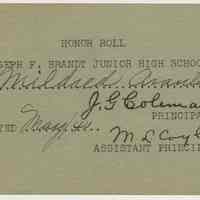 HONOR ROLL
SEPH F. BRANDT JUNIOR HIGH SCHOO
Mildred
J. G. Colema
PRINCIPA
TED May
M. L. Coyl
ASSISTANT PRINCIP